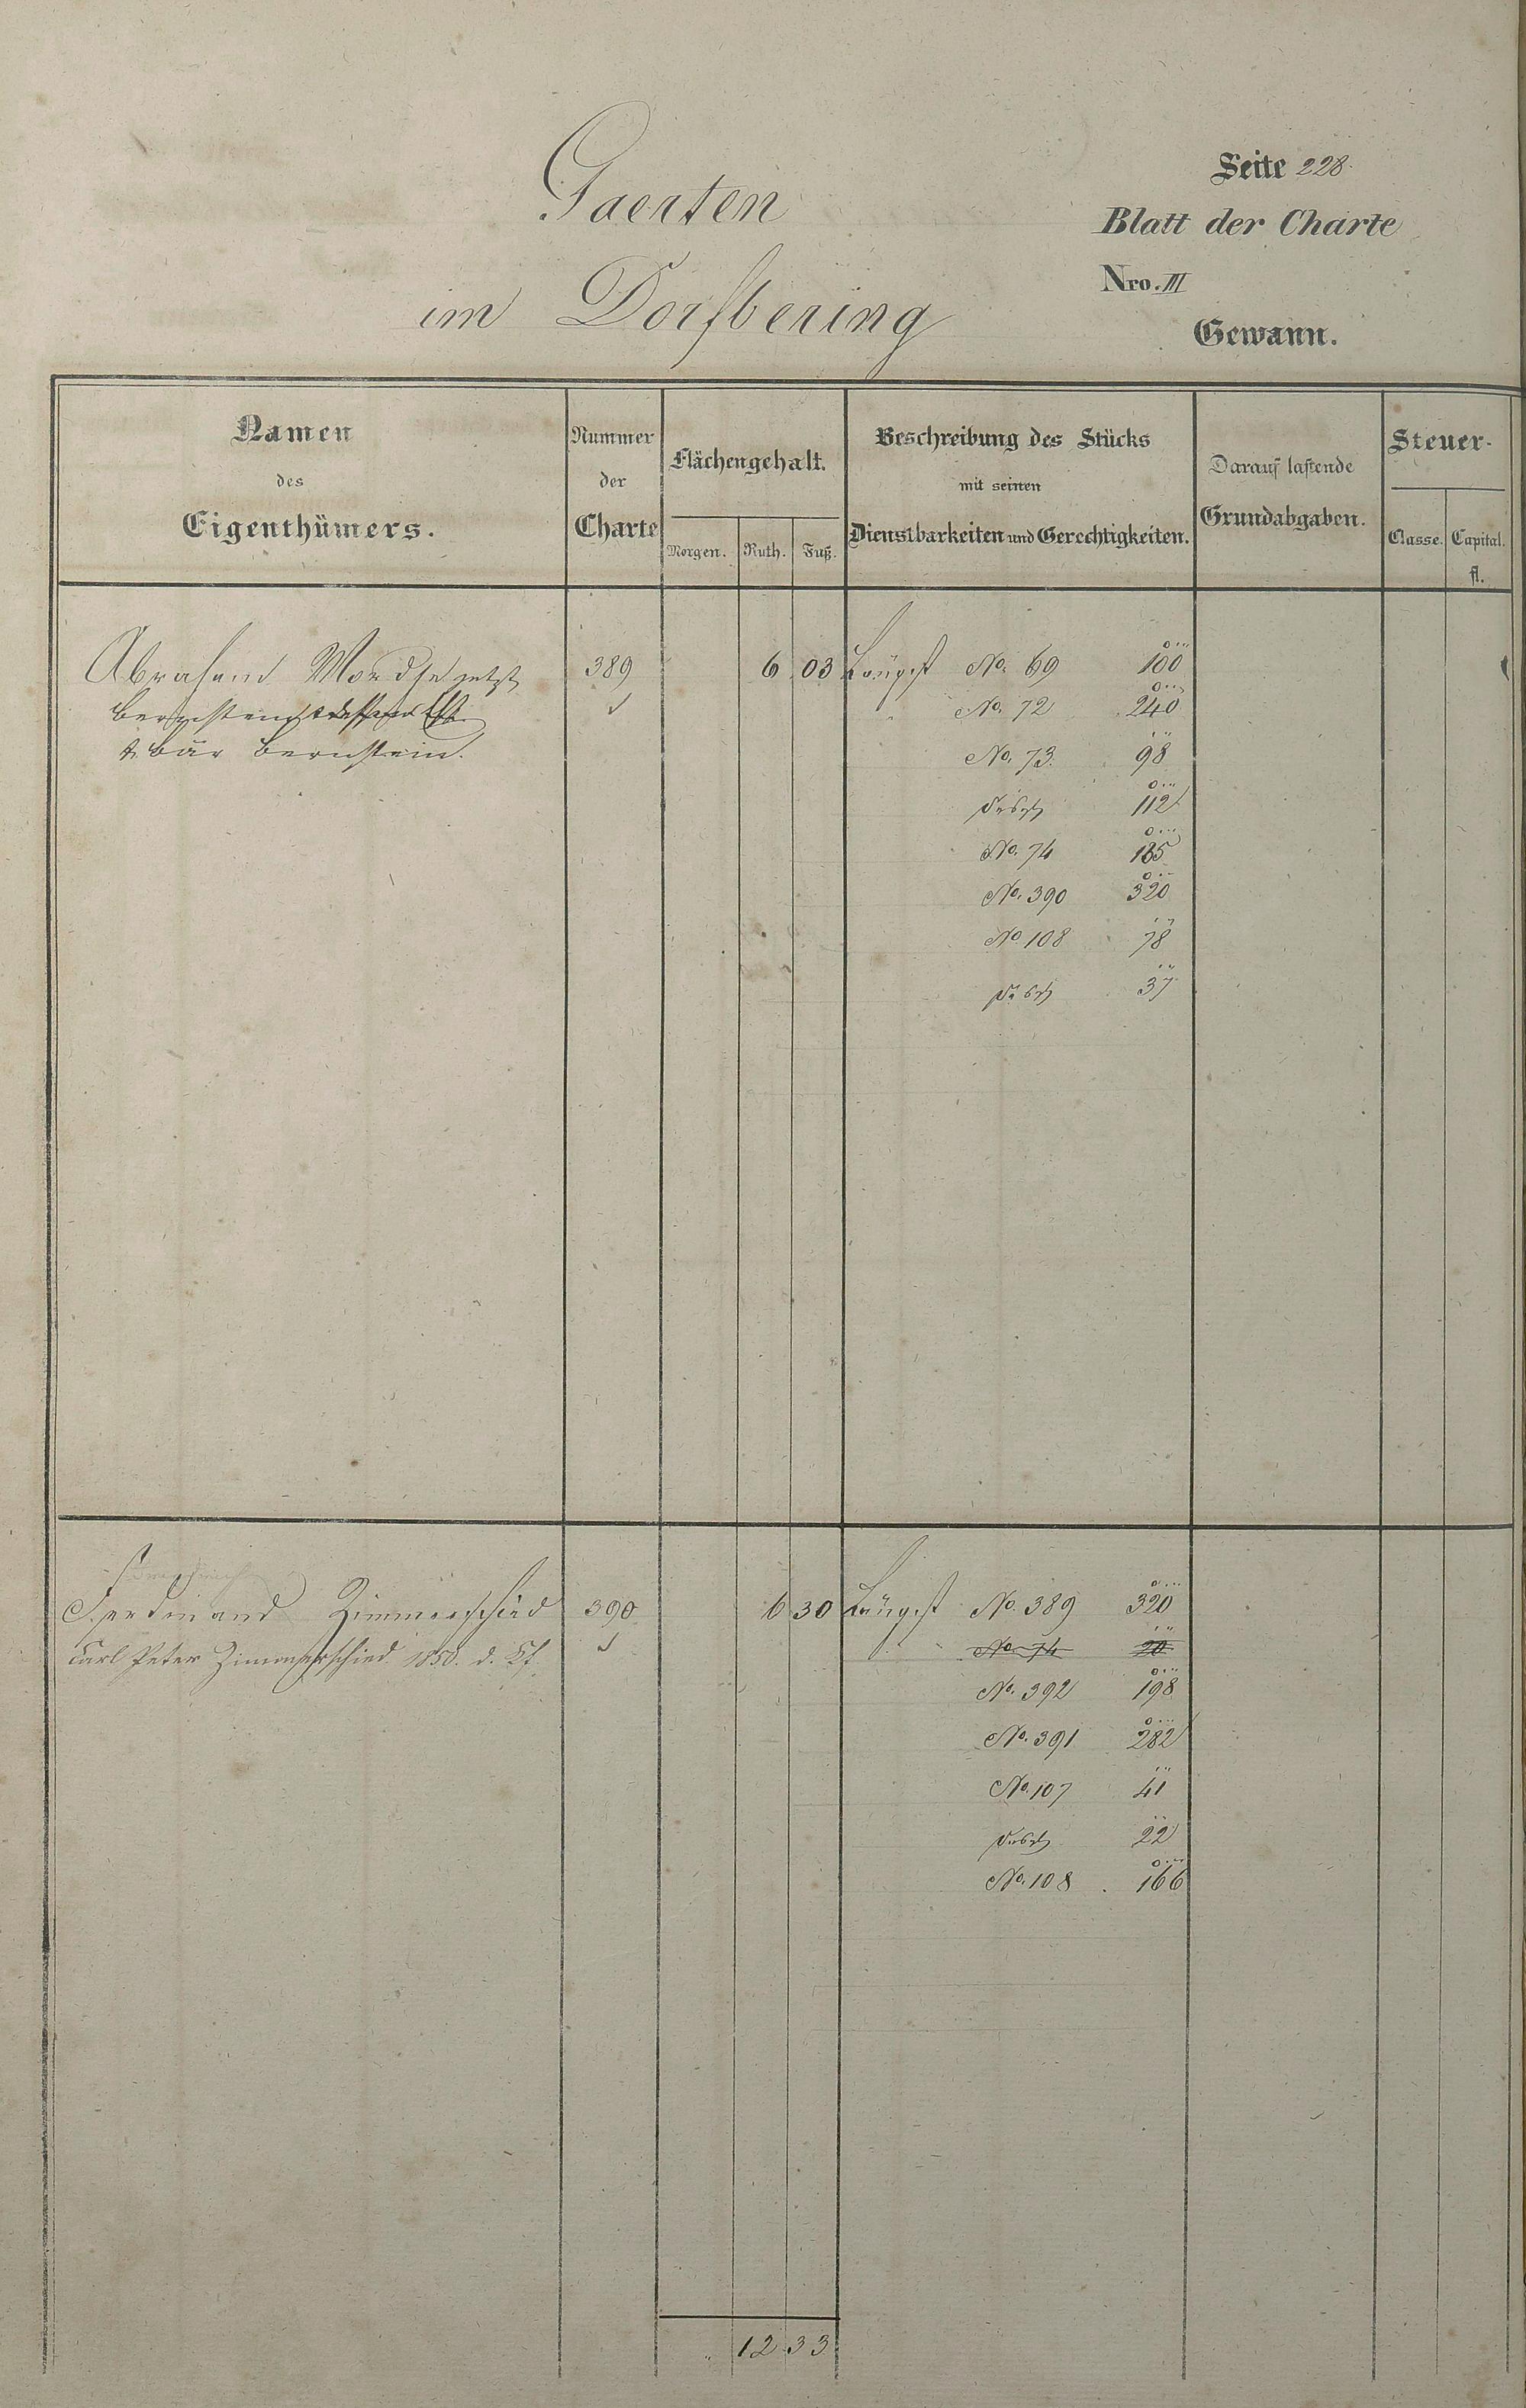 Gaerten
im Dorfbering
Seite 228.
Blatt der Charte
Nro. III
Gewann.
Namen des Eigenthümers.
Nummer der Charte
Flächengehalt.
Morgen. Ruth. Fuß.
Beschreibung des Stücks mit seinen Dienstbarkeiten und Gerechtigkeiten.
Darauf lastende Grundabgaben.
Steuer-
Classe. Capital.
fl.
Abraham jetzt 389 6 03 Längst No. 69 100
No. 72 240
bär Bernstein. No. 73. 98
112
No. 74 185
No. 390 320
No 108 78
37
Ferdinand Zimmerschied 390 6 30 Längst No. 389 320
Carl Peter Zimmerschied 1850. d. Kf. No. 74 20
No. 392 198
No. 391 282
No. 107 41
22
No. 108 166
12 33